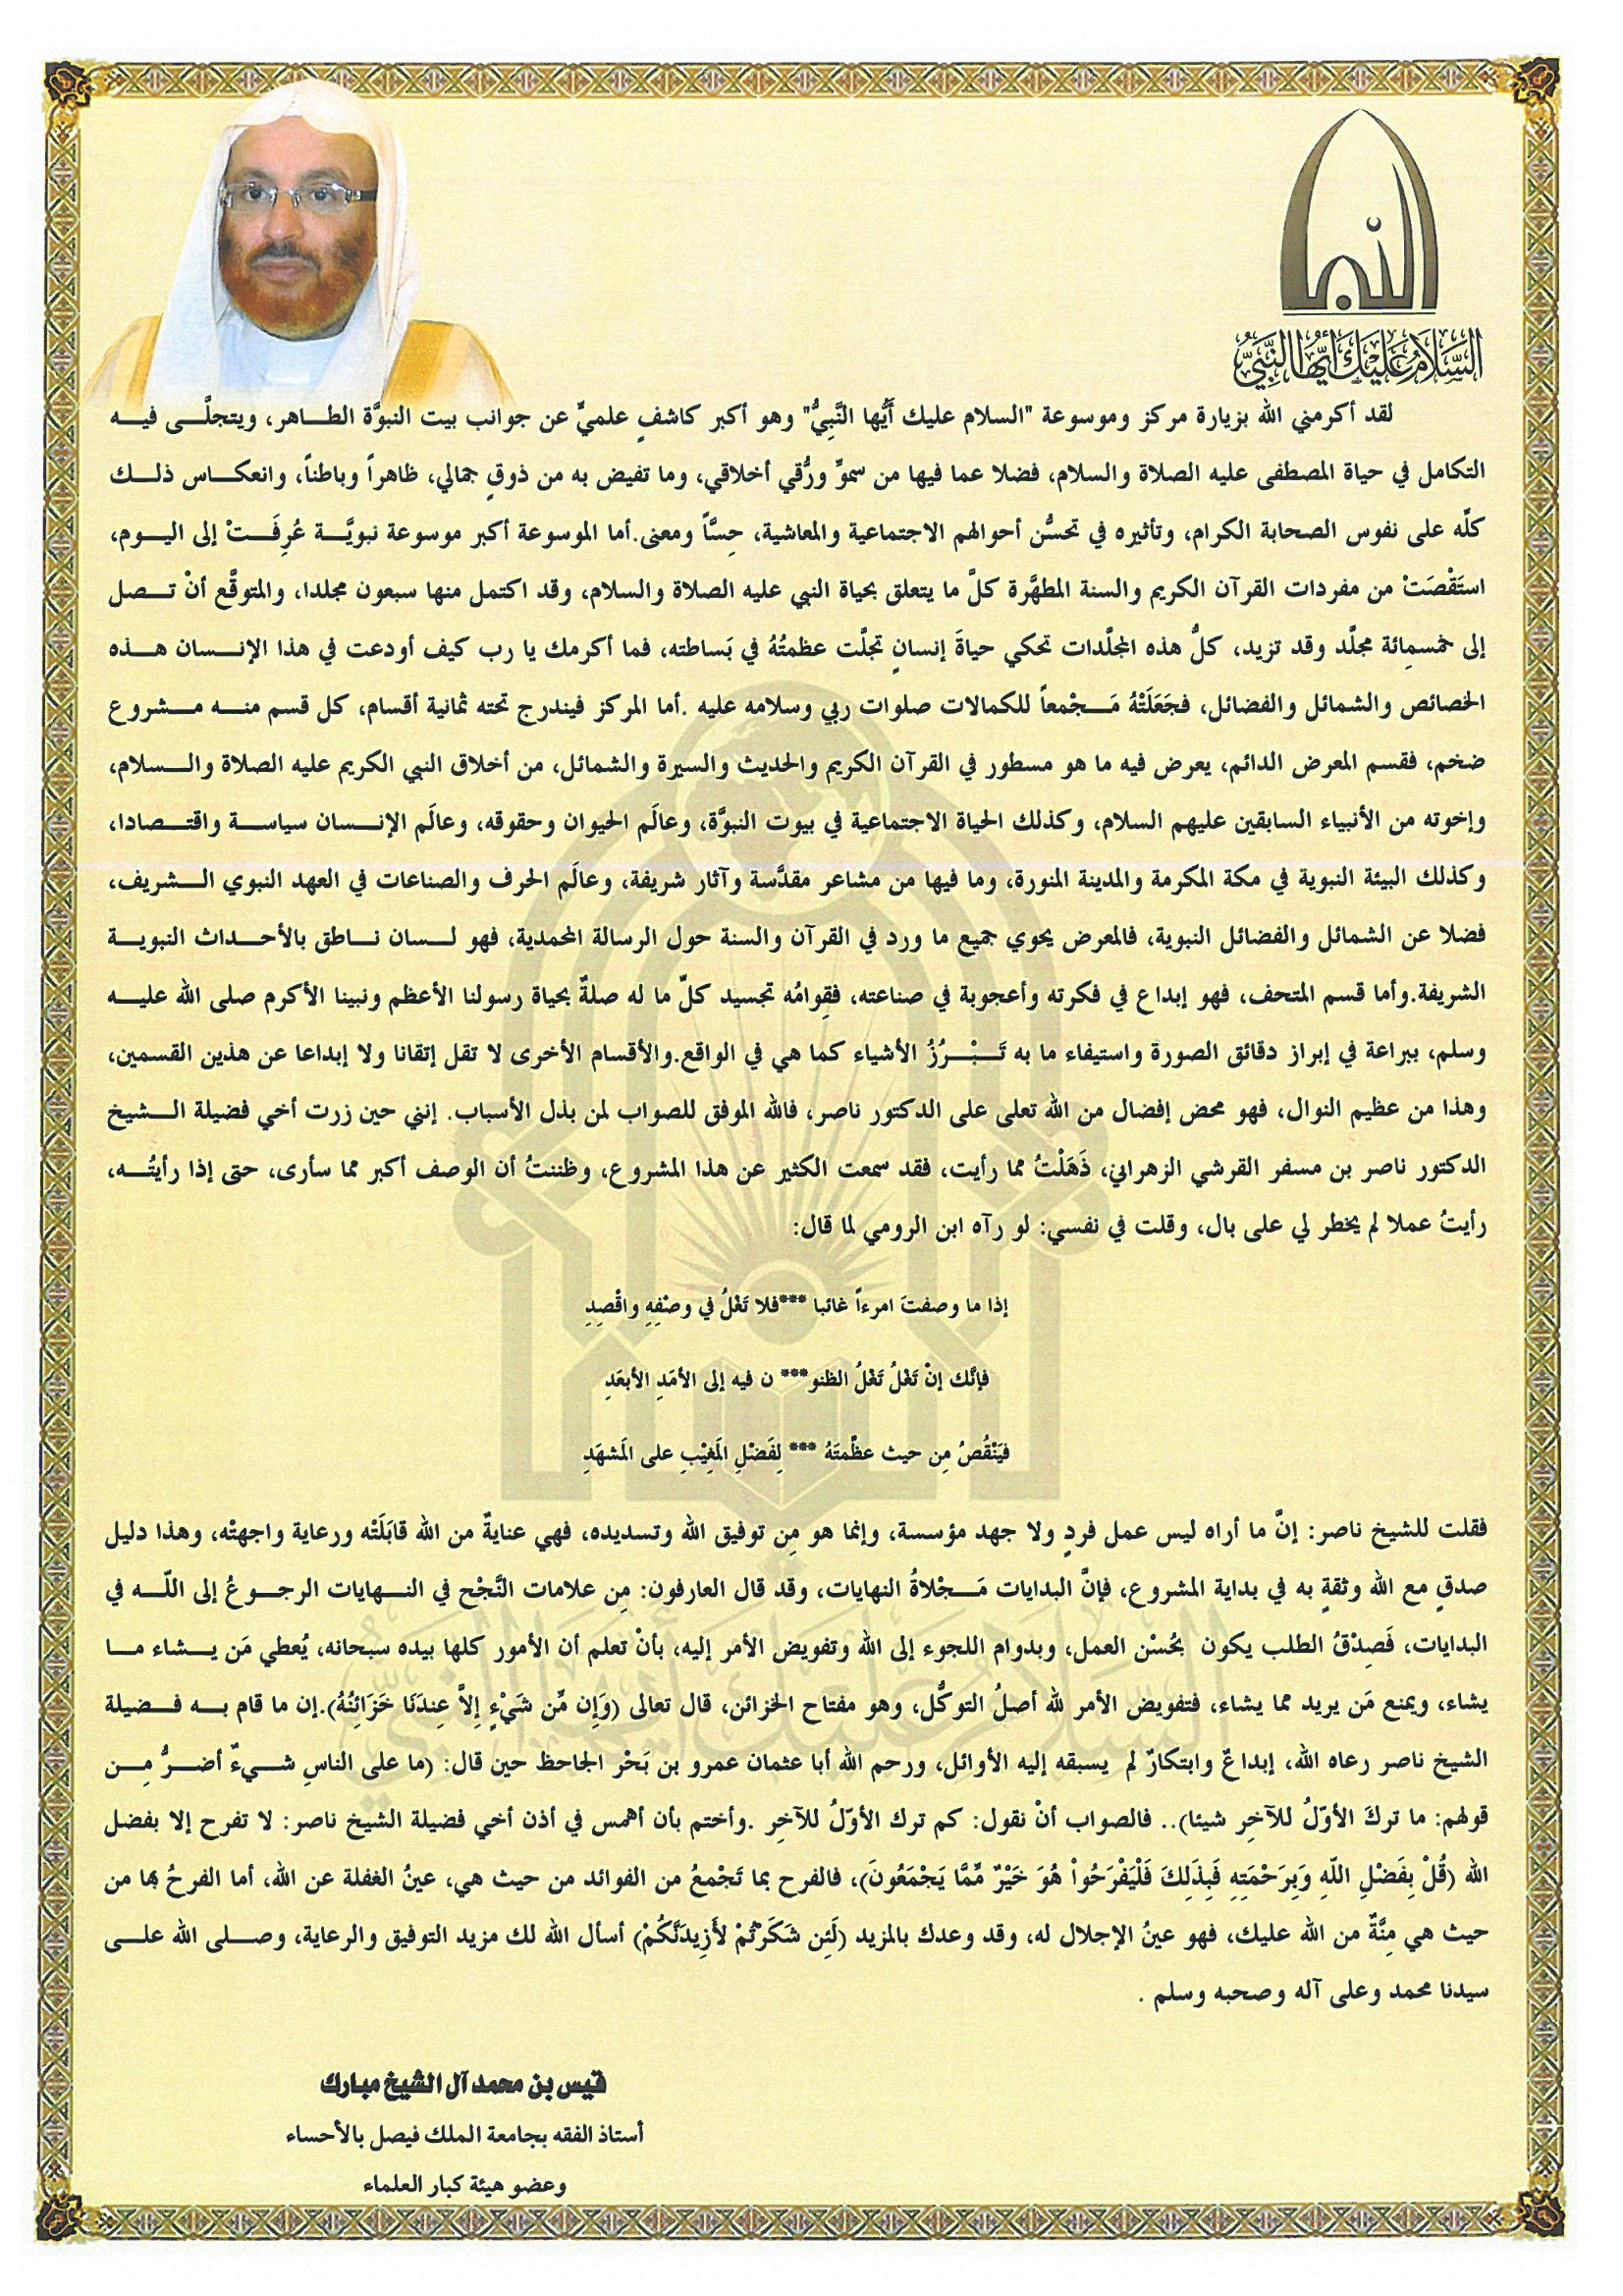 السلام عليك أيها النبي
لقد أكرمني الله بزيارة مركز وموسوعة "السلام عليك أَيُّها النَّبِيُّ" وهو أكبر كاشفٍ علميٍّ عن جوانب بيت النبوَّة الطـــاهر، ويتجلَّـــى فيـــه
التكامل في حياة المصطفى عليه الصلاة والسلام، فضلا عما فيها من سموٍّ ورُّقي أخلاقي، وما تفيض به من ذوقٍ جمالي، ظاهراً وباطناً، وانعكـــاس ذلـــك
كلّه على نفوس الصحابة الكرام، وتأثيره في تحسُّن أحوالهم الاجتماعية والمعاشية، حِسَّاً ومعنى.أما الموسوعة أكبر موسوعة نبويَّـــة عُرِفَـــتْ إلى اليـــوم،
استَقْصَتْ من مفردات القرآن الكريم والسنة المطهَّرة كلَّ ما يتعلق بحياة النبي عليه الصلاة والسلام، وقد اكتمل منها سبعون مجلدا، والمتوقَّع أنْ تـــصل
إلى خمسمِائة مجلَّد وقد تزيد، كلُّ هذه المجلَّدات تحكي حياةَ إنسانٍ تجلَّت عظمتُهُ في بَساطته، فما أكرمك يا رب كيف أودعت في هذا الإنـــسان هـــذه
الخصائص والشمائل والفضائل، فجَعَلَتْهُ مَـــجْمعاً للكمالات صلوات ربي وسلامه عليه .أما المركز فيندرج تحته ثمانية أقسام، كل قسم منـــه مـــشروع
ضخم، فقسم المعرض الدائم، يعرض فيه ما هو مسطور في القرآن الكريم والحديث والسيرة والشمائل، من أخلاق النبي الكريم عليه الصلاة والـــسلام،
وإخوته من الأنبياء السابقين عليهم السلام، وكذلك الحياة الاجتماعية في بيوت النبوَّة، وعالَم الحيوان وحقوقه، وعالَم الإنـــسان سياســـة واقتـــصادا،
وكذلك البيئة النبوية في مكة المكرمة والمدينة المنورة، وما فيها من مشاعر مقدَّسة وآثار شريفة، وعالَم الحرف والصناعات في العهد النبوي الـــشريف،
فضلا عن الشمائل والفضائل النبوية، فالمعرض يحوي جميع ما ورد في القرآن والسنة حول الرسالة المحمدية، فهو لـــسان نـــاطق بالأحـــداث النبويـــة
الشريفة.وأما قسم المتحف، فهو إبداع في فكرته وأعجوبة في صناعته، فقِوامُه تجسيد كلّ ما له صلةٌ بحياة رسولنا الأعظم ونبينا الأكرم صلى الله عليـــه
وسلم، ببراعة في إبراز دقائق الصورة واستيفاء ما به تَـــبْـــرُزُ الأشياء كما هي في الواقع.والأقسام الأخرى لا تقل إتقانا ولا إبداعا عن هذين القسمين،
وهذا من عظيم النوال، فهو محض إفضال من الله تعلى على الدكتور ناصر، فالله الموفق للصواب لمن بذل الأسباب. إنني حين زرت أخي فضيلة الـــشيخ
الدكتور ناصر بن مسفر القرشي الزهراني، ذَهَلْتُ مما رأيت، فقد سمعت الكثير عن هذا المشروع، وظننتُ أن الوصف أكبر مما سأرى، حتى إذا رأيتُـــه،
رأيتُ عملا لم يخطر لي على بال، وقلت في نفسي: لو رآه ابن الرومي لما قال:
إذا ما وصفتَ امرءاً غائبا ***فلا تَغْلُ في وصْفِهِ واقْصِدِ
فإنَّك إنْ تَغْلُ تَغْلُ الظنو*** ن فيه إلى الأمَدِ الأبعَدِ
فيَنْقُصُ مِن حيث عظَّمتَهُ *** لِفَضْلِ المَغِيْبِ على المَشهَدِ
فقلت للشيخ ناصر: إنَّ ما أراه ليس عمل فردٍ ولا جهد مؤسسة، وإنما هو مِن توفيق الله وتسديده، فهي عنايةٌ من الله قابَلَتْه ورعاية واجهتْه، وهذا دليل
صدقٍ مع الله وثقةٍ به في بداية المشروع، فإنَّ البدايات مَـــجْلاةُ النهايات، وقد قال العارفون: مِن علامات النَّجْح في النـــهايات الرجـــوعُ إلى اللّـــه في
البدايات، فَصِدْقُ الطلب يكون بحُسْن العمل، وبدوام اللجوء إلى الله وتفويض الأمر إليه، بأنْ تعلم أن الأمور كلها بيده سبحانه، يُعطي مَن يـــشاء مـــا
يشاء، ويمنع مَن يريد مما يشاء، فتفويض الأمر لله أصلُ التوكُّل، وهو مفتاح الخزائن، قال تعالى (وَإِن مِّن شَيْءٍ إِلاَّ عِندَنَا خَزَائِنُهُ).إن ما قام بـــه فـــضيلة
الشيخ ناصر رعاه الله، إبداعٌ وابتكارٌ لم يسبقه إليه الأوائل، ورحم الله أبا عثمان عمرو بن بَحْر الجاحظ حين قال: (ما على الناسِ شـــيءٌ أضـــرُّ مِـــن
قولهم: ما تركَ الأوّلُ للآخِر شيئا).. فالصواب أنْ نقول: كم ترك الأوّلُ للآخِر .وأختم بأن أهمس في أذن أخي فضيلة الشيخ ناصر: لا تفرح إلا بفضل
الله (قُلْ بِفَضْلِ اللّهِ وَبِرَحْمَتِهِ فَبِذَلِكَ فَلْيَفْرَحُواْ هُوَ خَيْرٌ مِّمَّا يَجْمَعُونَ)، فالفرح بما تَجْمعُ من الفوائد من حيث هي، عينُ الغفلة عن الله، أما الفرحُ بها من
حيث هي مِنَّةٌ من الله عليك، فهو عينُ الإجلال له، وقد وعدك بالمزيد (لَئِن شَكَرْتُمْ لأَزِيدَنَّكُمْ) أسأل الله لك مزيد التوفيق والرعاية، وصـــلى الله علـــى
سيدنا محمد وعلى آله وصحبه وسلم .
قيس بن محمد آل الشيخ مبارك
أستاذ الفقه بجامعة الملك فيصل بالأحساء
وعضو هيئة كبار العلماء